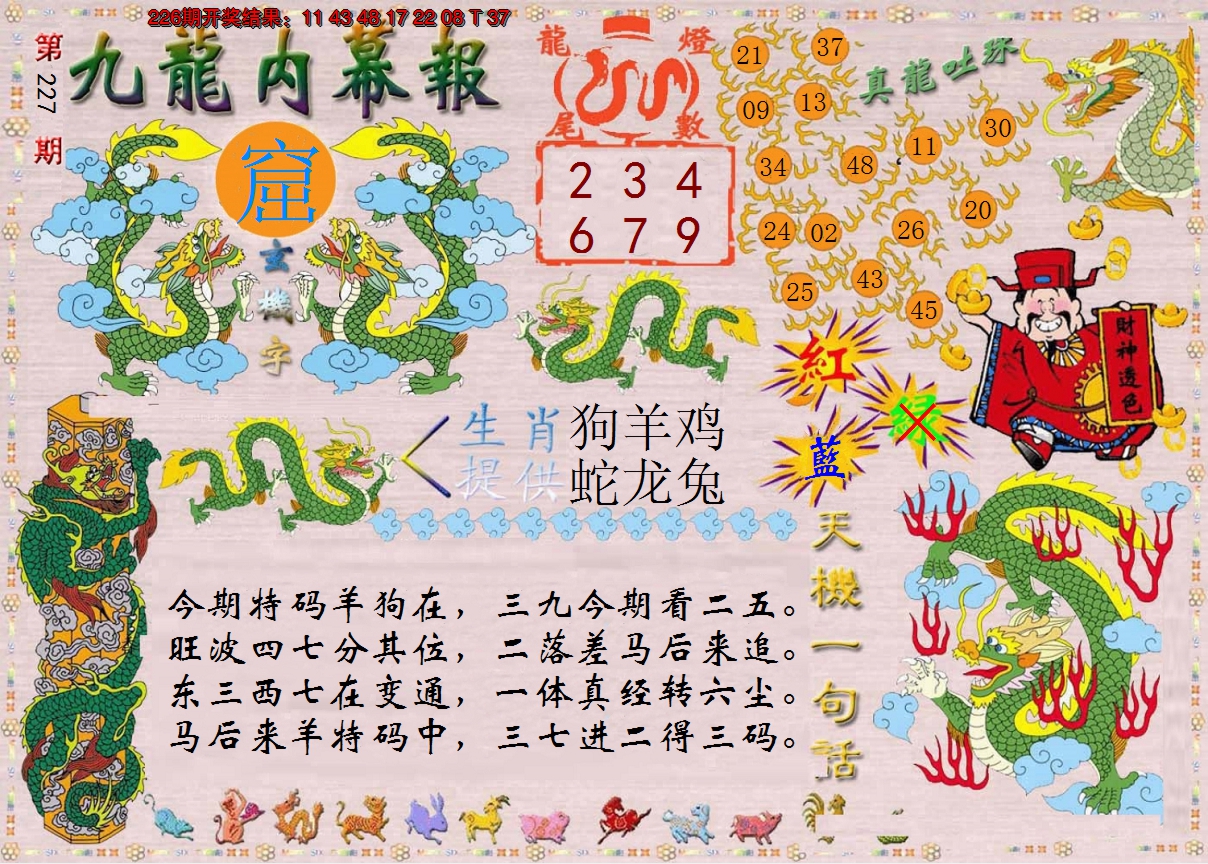 226期开奖结果：11 43 48 17 22 08 T 37
第
227
期
九龍内幕報
窟
玄
機
字
龍燈
尾數
2 3 4
6 7 9
真龍吐珠
21
37
09
13
34
48
11
30
24
02
26
20
25
43
45
紅
绿
藍
財神透色
生肖
提供
狗羊鸡
蛇龙兔
天機一句話
今期特码羊狗在，三九今期看二五。
旺波四七分其位，二落差马后来追。
东三西七在变通，一体真经转六尘。
马后来羊特码中，三七进二得三码。